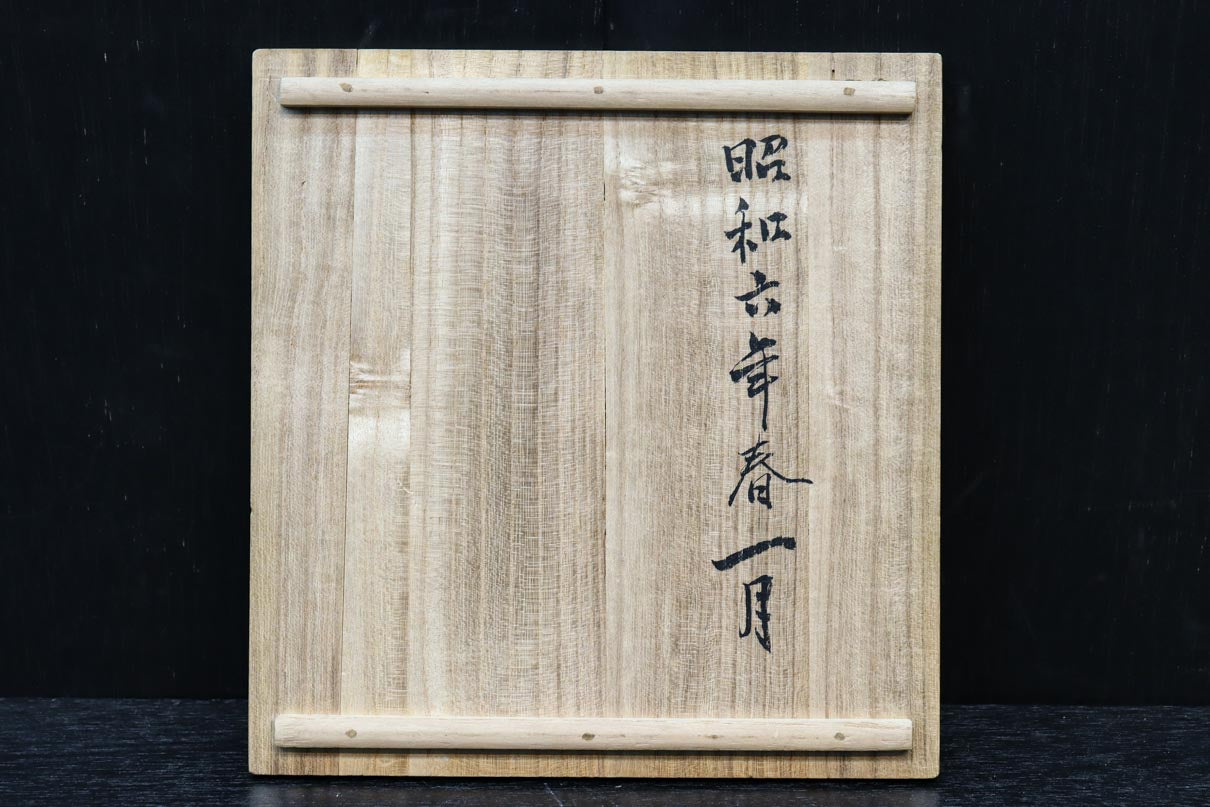 昭和六年春一月